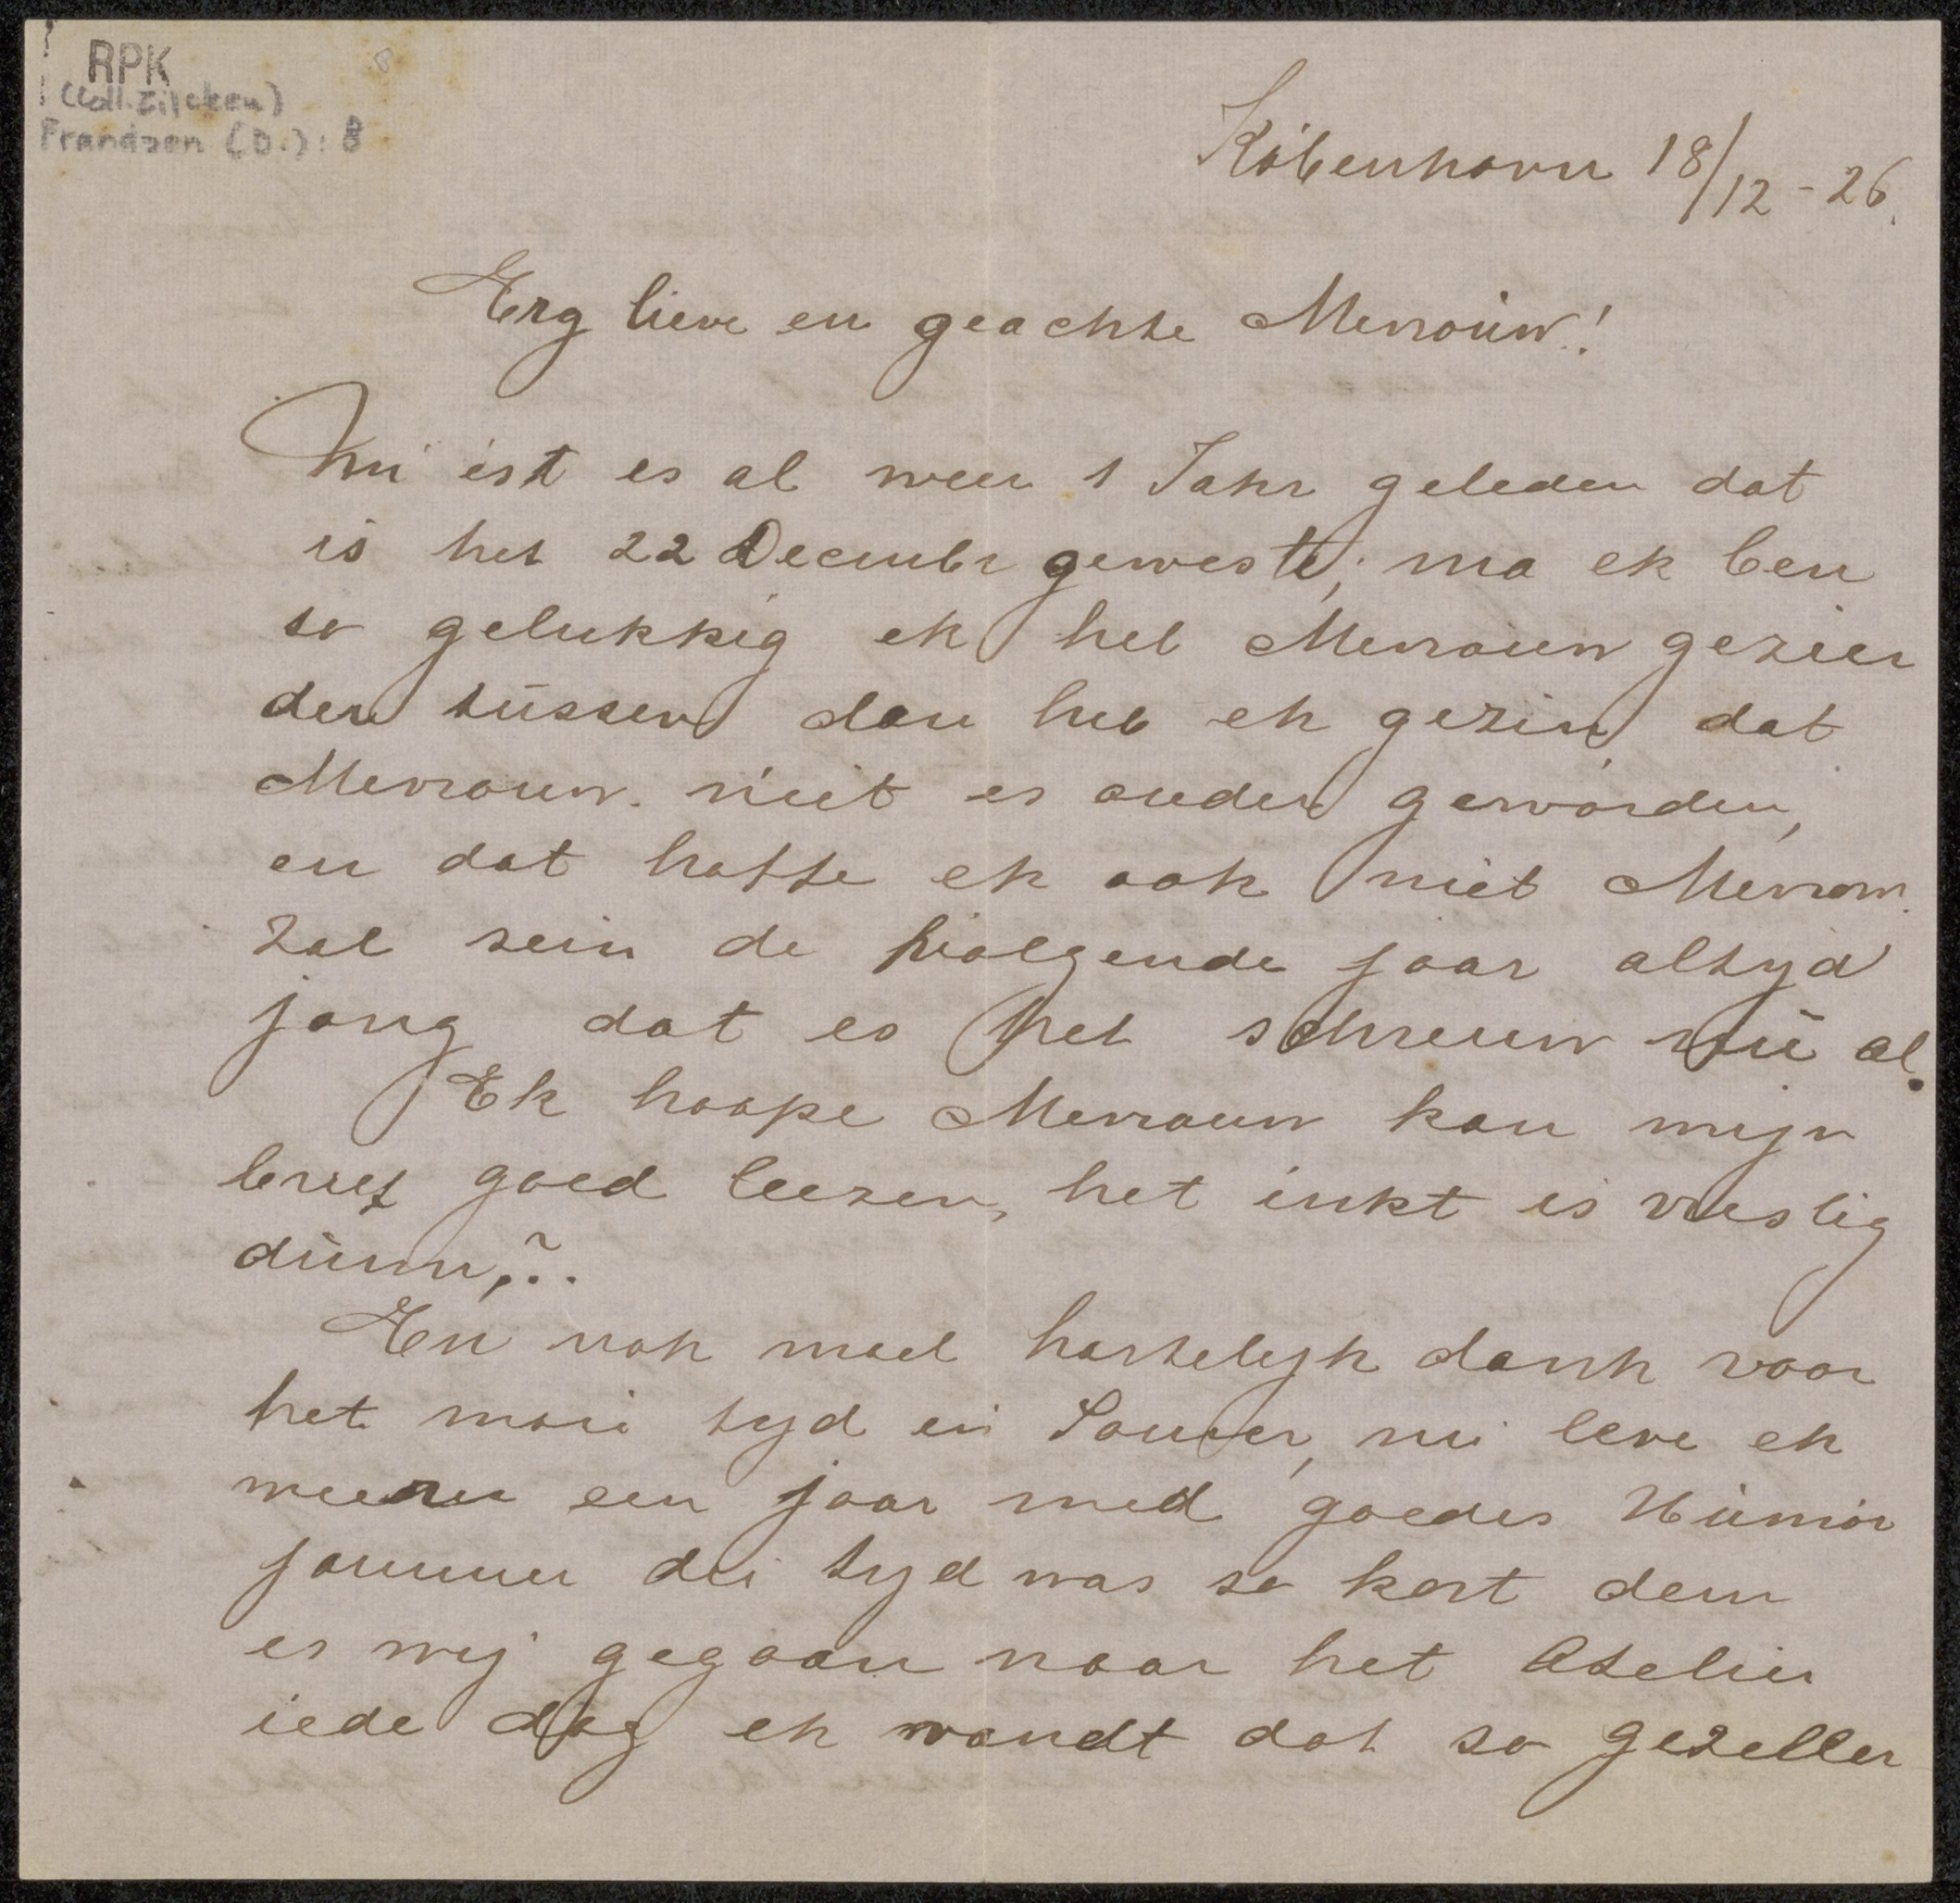 RPK
(Coll. Zilcken)
Frandsen (D.): B
København 18/12-26.
Erg lieve en geachte Mevrouw!
Nu ist es al weer 1 Jahr geleden dat
is het 22 Decembr geweste; ma ek ben
so gelukkig ek heb Mevrouw gezien
der tussen dan heb ek gezin dat
Mevrouw. niet es ouder geworden,
en dat hatte ek ook niet Mevrow.
zal sein de volgende jaar altyd
jong dat es het nu al.
Ek hoope Mevrouw kan mijn
brief goed leezen, het inkt is vreslig
dunn,?.
En noh mael hartelijk dank voor
het moie tyd in nu leve ek
een jaar med goedes Humor
jammer dei tyd was so kort dem
es wij gegaan naar het Atelier
iede dag ek vandt dat so gezeller